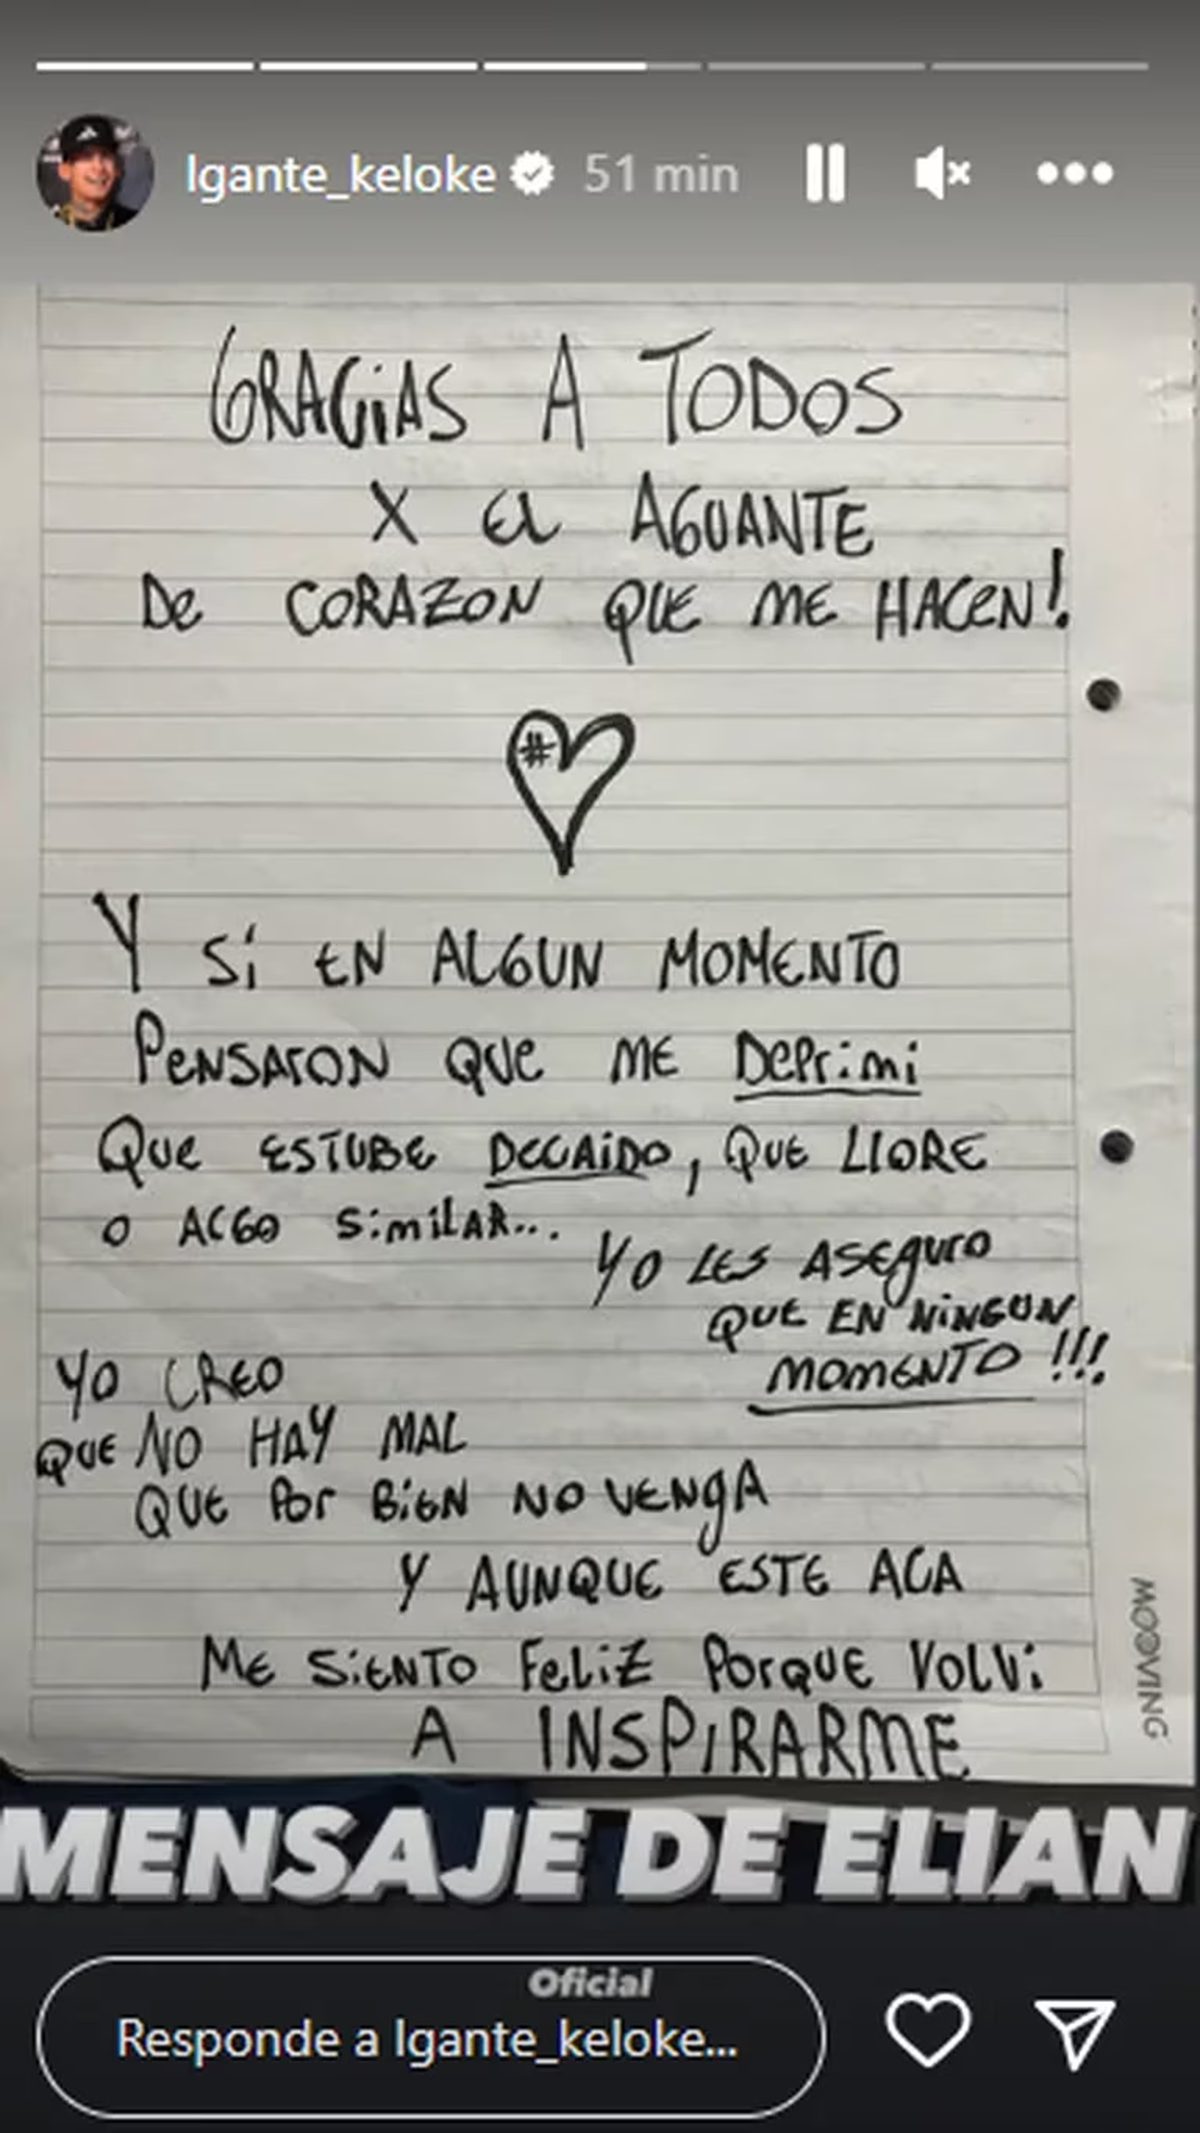 lgante_keloke 51 min
GRACiAS A TODOS
X EL AGUANTE
De CORAZON QUE ME HACEN!
#
Y Sí EN ALGUN MOMENTO
PENSARON QUE ME DePrimi
Que ESTUBE DECAiDO, QUE LLORE
O ALGO SimilAR...
YO LES ASEguro
QUE EN NiNGUN
MOMENTO !!!
YO CREO
QUE NO HAY MAL
QUE POr BiEN NO VENgA
Y AUNQUE ESTE ACA
ME SiENTO FeLiZ PorQUE VOLVi
A INSPIRARME
MOOVING
MENSAJE DE ELIAN
Oficial
Responde a lgante_keloke...